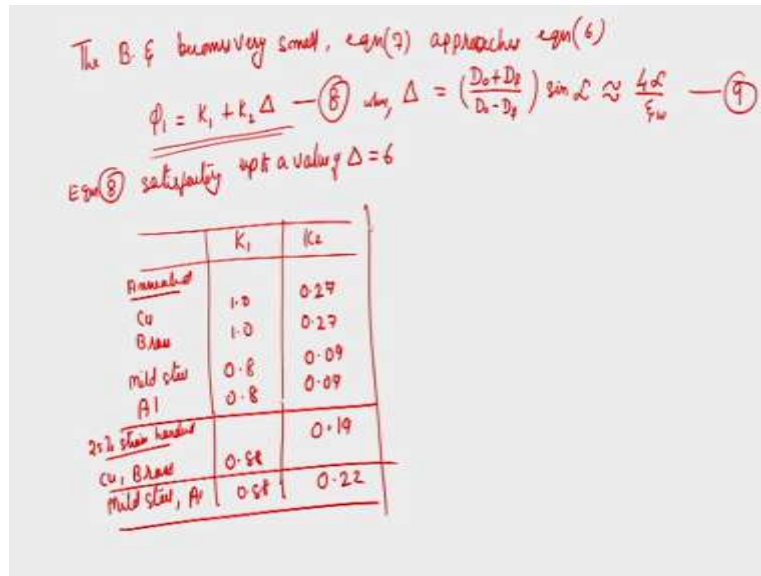 The B. & becomes very small, eqn(7) approaches eqn(6)
φ₁ = K₁ + K₂ Δ — ⑧ where, Δ = (D₀+Df / D₀-Df) sin α ≈ 4α / ξw — ⑨
Eqn ⑧ satisfactory upto a value of Δ = 6
K₁ K₂
Annealed
Cu 1.0 0.27
Brass 1.0 0.27
Mild steel 0.8 0.09
Al 0.8 0.09
25% strain hardened
Cu, Brass 0.88 0.19
Mild steel, Al 0.88 0.22